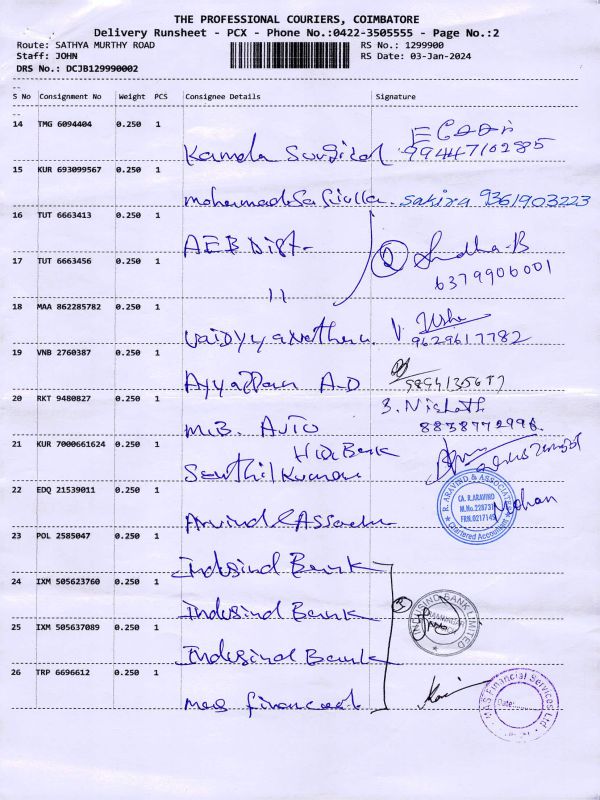 THE PROFESSIONAL COURIERS, COIMBATORE
Delivery Runsheet - PCX - Phone No.:0422-3505555 - Page No.:2
Route: SATHYA MURTHY ROAD RS No.: 1299900
Staff: JOHN RS Date: 03-Jan-2024
DRS No.: DCJB129990002
S No Consignment No Weight PCS Consignee Details Signature
14 TMG 6094404 0.250 1
Kamala Surgical 99447102885
15 KUR 693099567 0.250 1
Mohammad Safiulla sakira 9361903223
16 TUT 6663413 0.250 1
AEB Dist- 2 Sindha-B
17 TUT 6663456 0.250 1 6379906001
11
18 MAA 862285782 0.250 1
Vaidyyanathan V. Usha
9629617782
19 VNB 2760387 0.250 1
Ayyappan A-D
20 RKT 9480827 0.250 1 3. Nishath
M.B. AUTO 8838772996.
21 KUR 7000661624 0.250 1 Bank
Senthil Kumar
22 EDQ 21539011 0.250 1 R. ARAVIND & ASSOCIATES
CA. R.ARAVIND
M.No.
FRN.
Chartered Accountants
Mohan
Arvind & Assoc
23 POL 2585047 0.250 1
Indusind Bank
24 IXM 505623760 0.250 1
Indusind Bank 3 INDUSIND BANK LIMITED
25 IXM 505637089 0.250 1
Indusind Bank
26 TRP 6696612 0.250 1
Mas financial MAS Financial Services Ltd
Date: